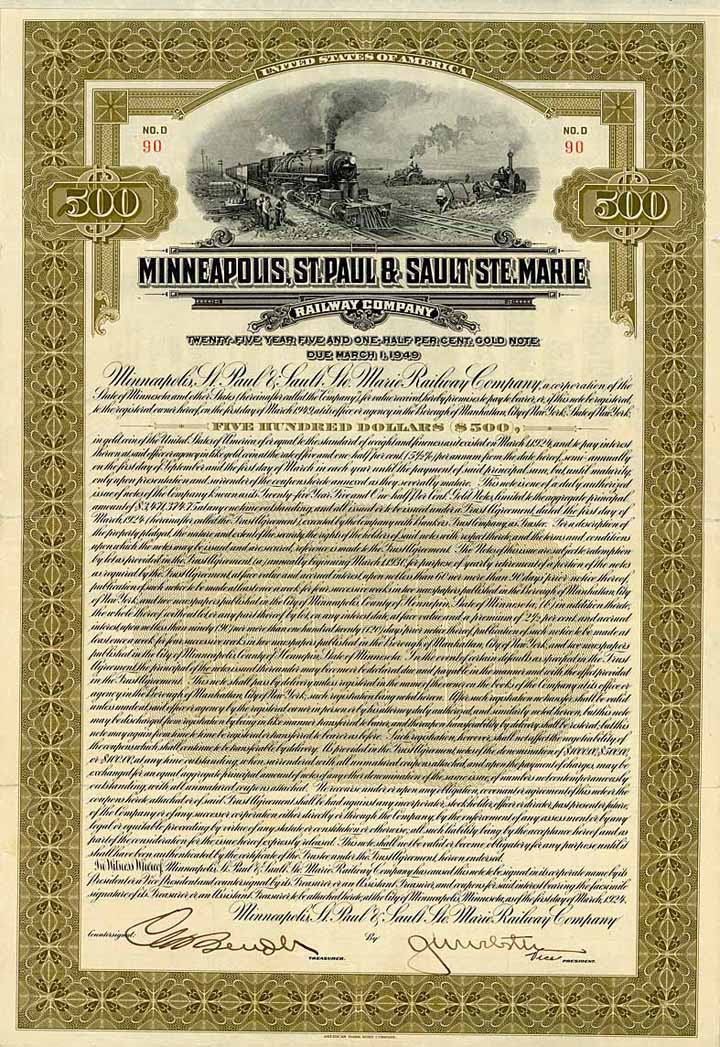 UNITED STATES OF AMERICA
NO. D
90
NO. D
90
500
500
MINNEAPOLIS, ST. PAUL & SAULT STE. MARIE
RAILWAY COMPANY
TWENTY-FIVE YEAR, FIVE AND ONE-HALF PER CENT. GOLD NOTE
DUE MARCH 1, 1949
Minneapolis, St. Paul & Sault Ste. Marie Railway Company, a corporation of the
State of Minnesota and other States (hereinafter called the Company), for value received, hereby promises to pay to bearer, or, if this note be registered,
to the registered owner hereof, on the first day of March 1949, at its office or agency in the Borough of Manhattan, City of New York, State of New York,
FIVE HUNDRED DOLLARS ($500),
in gold coin of the United States of America of or equal to the standard of weight and fineness as it existed on March 1, 1924, and to pay interest
thereon at said office or agency in like gold coin at the rate of five and one-half per cent. (5½%) per annum from the date hereof, semi-annually,
on the first day of September and the first day of March in each year until the payment of said principal sum, but until maturity,
only upon presentation and surrender of the coupons hereto annexed as they severally mature. This note is one of a duly authorized
issue of notes of the Company known as its Twenty-five Year, Five and One-Half Per Cent. Gold Notes, limited to the aggregate principal
amount of at any one time outstanding, and all issued or to be issued under a Trust Agreement, dated the first day of
March, 1924 (hereinafter called the Trust Agreement), executed by the Company with Bankers Trust Company, as Trustee. For a description of
the property pledged, the nature and extent of the security, the rights of the holders of said notes with respect thereto, and the terms and conditions
upon which the notes may be issued and are secured, reference is made to the Trust Agreement. The Notes of this issue are subject to redemption
by lot as provided in the Trust Agreement, (a) annually beginning March 1, 1930, for purpose of yearly retirement of a portion of the notes
as required by the Trust Agreement, at face value and accrued interest, upon not less than 60 nor more than 90 days prior notice thereof,
publication of such notice to be made at least once a week for four successive weeks in two newspapers published in the Borough of Manhattan, City
of New York, and two newspapers published in the City of Minneapolis, County of Hennepin, State of Minnesota, (b) in addition thereto,
the whole thereof without lot, or any part thereof by lot, on any interest date, at face value and a premium of 2½ per cent. and accrued
interest, upon not less than ninety (90) nor more than one hundred twenty (120) days prior notice thereof, publication of such notice to be made at
least once a week for four successive weeks in two newspapers published in the Borough of Manhattan, City of New York, and two newspapers
published in the City of Minneapolis, County of Hennepin, State of Minnesota. In the event of certain defaults as specified in the Trust
Agreement, the principal of the notes issued thereunder may become or be declared due and payable in the manner and with the effect provided
in the Trust Agreement. This note shall pass by delivery unless registered in the name of the owner on the books of the Company at its office or
agency in the Borough of Manhattan, City of New York, such registration being noted hereon. After such registration no transfer shall be valid
unless made at said office or agency by the registered owner in person or by his attorney duly authorized, and similarly noted hereon, but this note
may be discharged from registration by being in like manner transferred to bearer, and thereupon transferability by delivery shall be restored, but this
note may again from time to time be registered or transferred to bearer as before. Such registration, however, shall not affect the negotiability of
the coupons which shall continue to be transferable by delivery. As provided in the Trust Agreement, notes of the denomination of $1000.00, $500.00,
or $100.00, at any time outstanding, when surrendered with all unmatured coupons attached, and upon the payment of charges, may be
exchanged for an equal aggregate principal amount of notes of any other denomination of the same issue, of numbers not contemporaneously
outstanding, with all unmatured coupons attached. No recourse under or upon any obligation, covenant or agreement of this note or the
coupons hereto attached or of said Trust Agreement shall be had against any incorporator, stockholder, officer or director, past, present or future,
of the Company or of any successor corporation either directly or through the Company, by the enforcement of any assessment or by any
legal or equitable proceeding by virtue of any statute or constitution or otherwise, all such liability being by the acceptance hereof and as
part of the consideration for the issue hereof expressly released. This note shall not be valid or become obligatory for any purpose until it
shall have been authenticated by the certificate of the Trustee under the Trust Agreement, hereon endorsed.
In Witness Whereof, Minneapolis, St. Paul & Sault Ste. Marie Railway Company has caused this note to be signed in its corporate name by its
President or a Vice President and countersigned by its Treasurer or an Assistant Treasurer, and coupons for said interest bearing the facsimile
signature of its Treasurer or an Assistant Treasurer to be attached hereto, at the City of Minneapolis, Minnesota, as of the first day of March, 1924.
Minneapolis, St. Paul & Sault Ste. Marie Railway Company
Countersigned:
By
TREASURER.
Vice PRESIDENT.
AMERICAN BANK NOTE COMPANY.